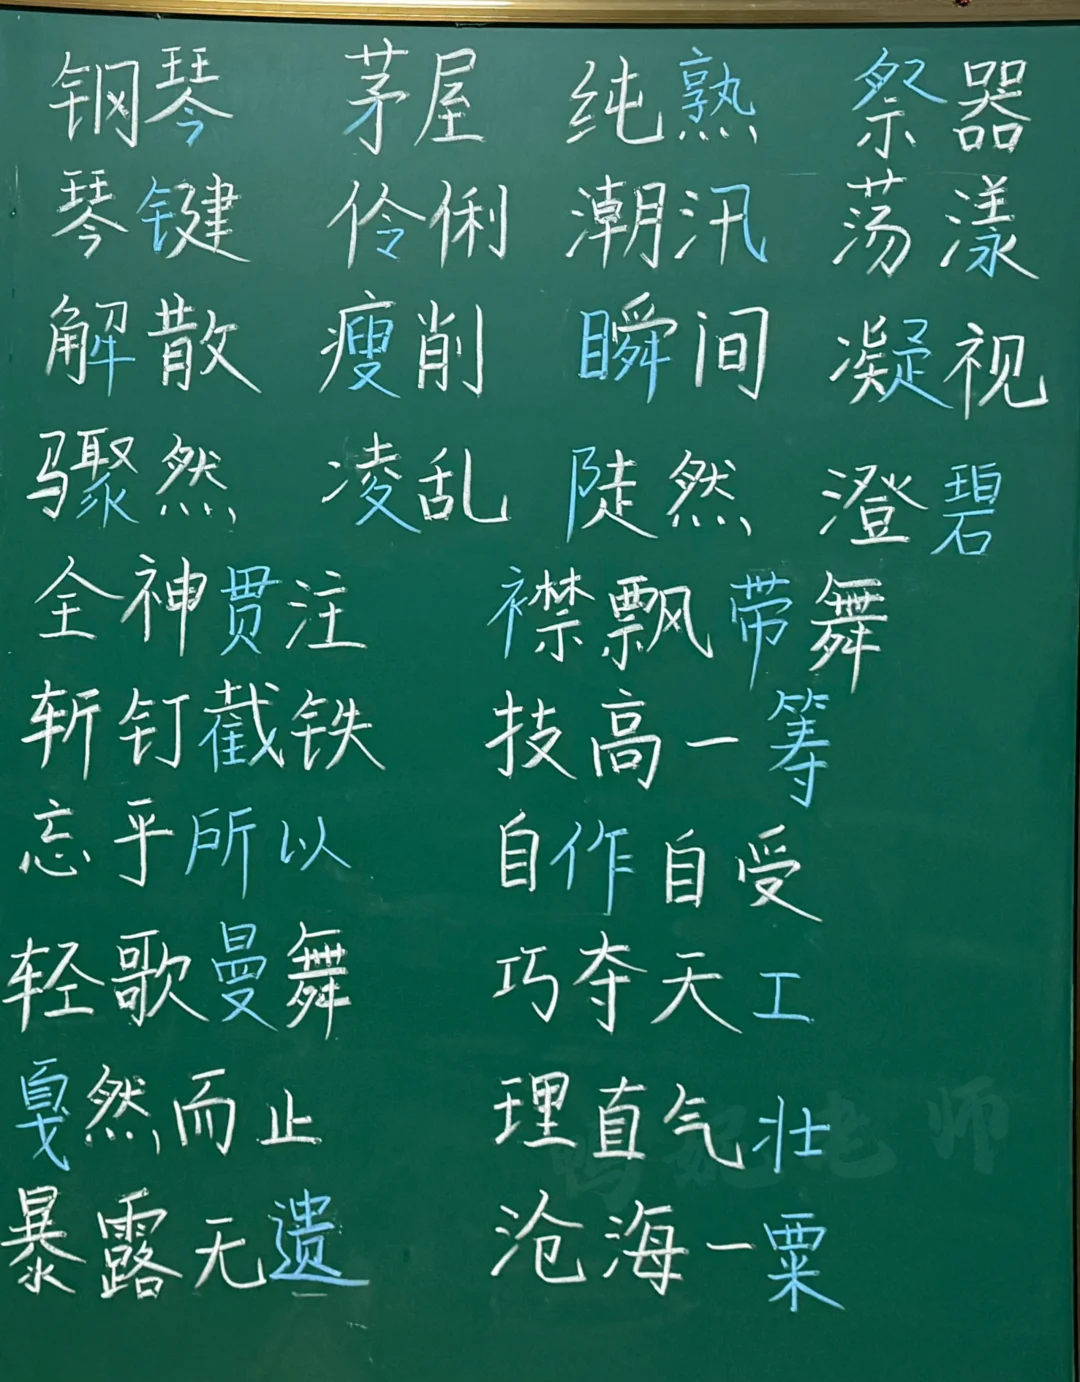 钢琴 茅屋 纯熟 祭器
琴键 伶俐 潮汛 荡漾
解散 瘦削 瞬间 凝视
骤然 凌乱 陡然 澄碧
全神贯注 襟飘带舞
斩钉截铁 技高一筹
忘乎所以 自作自受
轻歌曼舞 巧夺天工
戛然而止 理直气壮
暴露无遗 沧海一粟